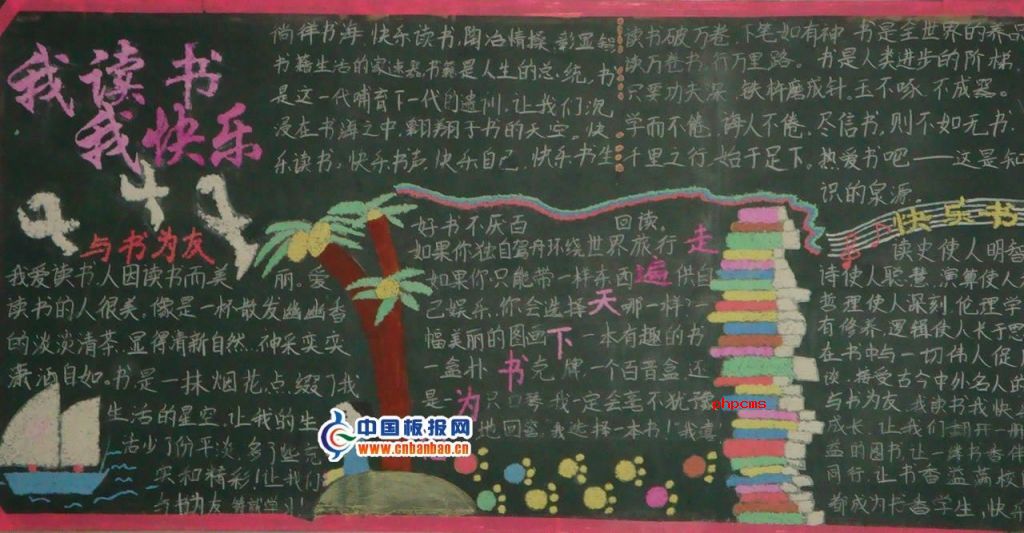 我读书
我快乐
徜徉书海,快乐读书,陶冶情操,彰显知
书籍生活的
书籍是人生的总统,书
是这一代哺育下一代的遗训,让我们沉
浸在书海之中,翱翔于书的天空。快
乐读书,快乐书声,快乐自己,快乐书生
读书破万卷,下笔如有神 书是全世界的养品
读万卷书,行万里路。书是人类进步的阶梯,
只要功夫深,铁杵磨成针。玉不啄,不成器。
学而不倦,诲人不倦。尽信书,则不如无书,
千里之行,始于足下。热爱书吧——这是知
识的泉源。
与书为友
我爱读书,人因读书而美丽。爱
读书的人很美,像是一杯散发幽幽香
的淡淡清茶,显得清新自然,神采奕奕
潇洒自如。书是一抹烟花,点缀了我
生活的星空,让我的生
活少了份平淡,多了些充
实和精彩!让我们
与书为友
学习!
好书不厌百回读。
如果你独自驾舟环绕世界旅行
如果你只能带一样东西供自
己娱乐,你会选择哪一样?
幅美丽的图画,一本有趣的书
一盒扑克牌,一个百音盒,还
是一只口琴,我一定会毫不犹豫
地回答,我选择一本书!
走遍天下书为
快乐书
读史使人明智
诗使人聪慧,演算使人
哲理使人深刻,伦理学
有修养,逻辑使人长于思
在书中与一切伟人促
谈,接受古今中外名人的
与书为友,我读书我快
成长,让我们翻开一册
盎的图书,让一缕书香伴
同行,让书香益满校
都成为书香学生,快乐
phpcms
中国板报网
www.cnbanbao.cn